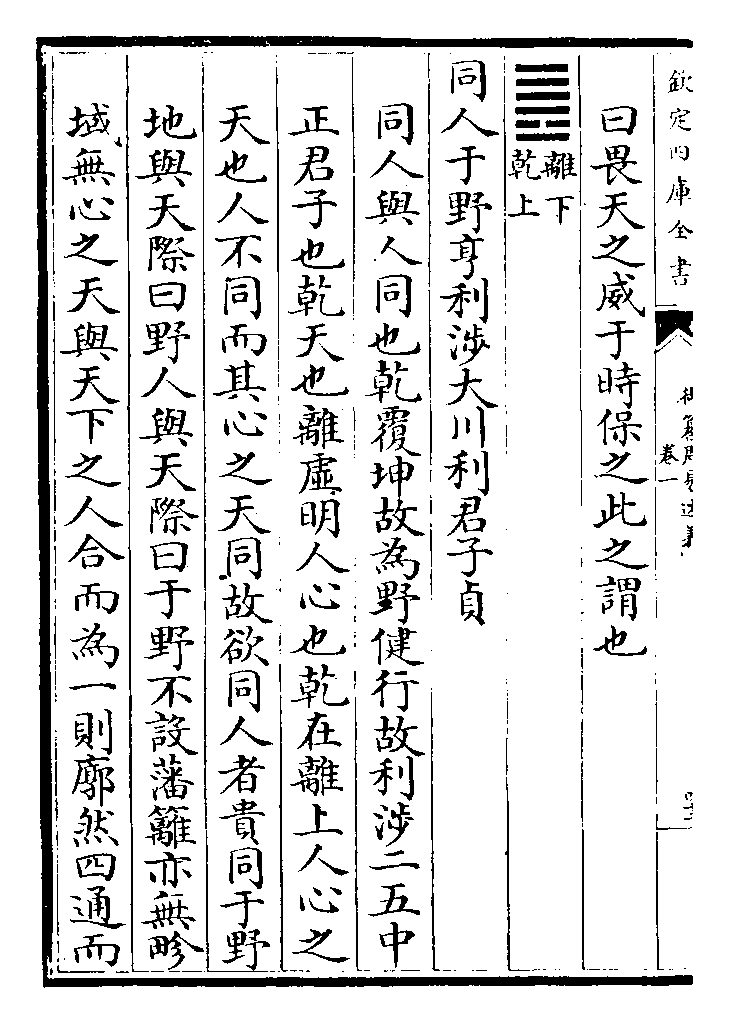 欽定四庫全書
卷一
曰畏天之威于時保之此之謂也
離下
乾上
同人于野亨利涉大川利君子貞
同人與人同也乾覆坤故為野健行故利涉二五中
正君子也乾天也離虛明人心也乾在離上人心之
天也人不同而其心之天同故欲同人者貴同于野
地與天際曰野人與天際曰于野不設藩籬亦無畛
域無心之天與天下之人合而為一則廓然四通而